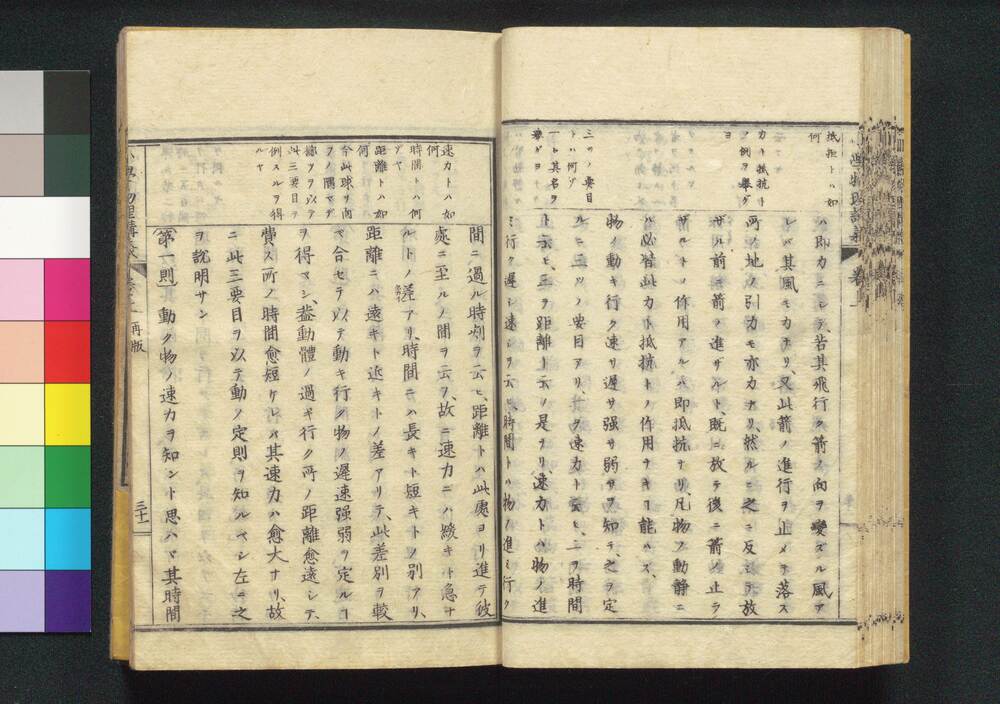 抵拒トハ如
何
力ト抵抗ト
ノ例ヲ擧グ
ヨ
三ツノ要目
トハ何ゾ
一々其名ヲ
擧ゲヨ
ハ即力ニシテ、若其飛行ク箭ノ向ヲ變ズル風ア
レバ其風モ力ナリ、又此箭ノ進行ヲ止メテ落ス
所ノ地ノ引力モ亦力ナリ、然ルニ之ニ反シテ放
ザル前ニ箭ノ進ザルト、既ニ放テ後ニ箭ノ止ラ
ザルトノ作用アルハ即抵抗ナリ、凡物ノ動靜ニ
ハ必皆此力ト抵抗トノ作用ナキコ能ハズ、
物ノ動キ行ク速サ遲サ强サ弱サヲ知テ、之ヲ定
ルニ三ツノ要目アリ、一ヲ速力ト云ヒ、二ヲ時間
ト云ヒ、三ヲ距離ト云フ是ナリ、速力トハ物ノ進
ミ行ク遲シ速シヲ云ヒ、時間トハ物ノ進ミ行ク
速力トハ如
何
時間トハ何
ゾヤ
距離トハ如
何
今此球リ向
フノ隅マデ
轉ヲフ以テ
此三要目ヲ
例スルヲ得
ルヤ
間ニ過ル時刻ヲ云ヒ、距離トハ此處ヨリ進テ彼
處ニ至ルノ間ヲ云フ、故ニ速力ニハ緩キト急ナ
ルトノ差アリ、時間ニハ長キト短キトノ別アリ、
距離ニハ遠キト近キトノ差アリテ、此差別ヲ較
ベ合セテ以テ動キ行ク物ノ遲速强弱ヲ定ルコ
ヲ得ベシ、蓋動體ノ過ギ行ク所ノ距離愈遠シテ、
費ス所ノ時間愈短ケレバ其速力ハ愈大ナリ、故
ニ此三要目ヲ以テ動ノ定則ヲ知ルベシ左ニ之
ヲ說明サン
第一則 動ク物ノ速力ヲ知ント思ハヾ其時間
再版
三十一